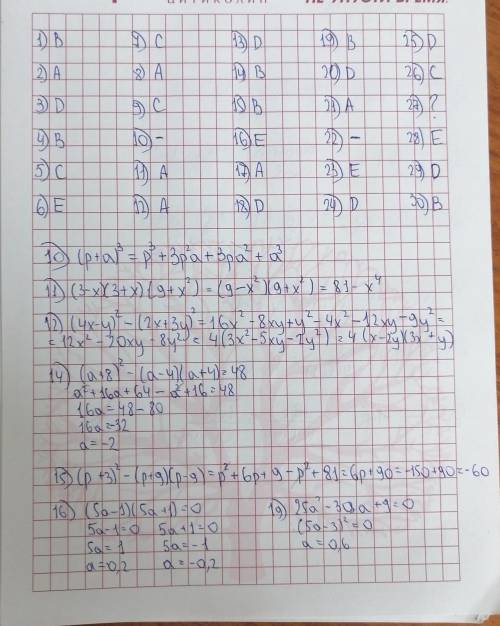 ЦИТИКОЛИН НЕ УПУСТИ ВРЕМЯ.
1) B 7) C 13) D 19) B 25) D
2) A 8) A 14) B 20) D 26) C
3) D 9) C 15) B 21) A 27) ?
4) B 10) – 16) E 22) – 28) E
5) C 11) A 17) A 23) E 29) D
6) E 12) A 18) D 24) D 30) B
10) (p+a)³ = p³ + 3p²a + 3pa² + a³
11) (3-x)(3+x)(9+x²) = (9-x²)(9+x²) = 81 - x⁴
12) (4x-y)² - (2x+3y)² = 16x² - 8xy + y² - 4x² - 12xy - 9y² =
= 12x² - 20xy - 8y² = 4(3x² - 5xy - 2y²) = 4(x-2y)(3x+y)
14) (a+8)² - (a-4)(a+4) = 48
a² + 16a + 64 - a² + 16 = 48
16a = 48 - 80
16a = -32
a = -2
15) (p+3)² - (p+9)(p-9) = p² + 6p + 9 - p² + 81 = 6p + 90 = -150 + 90 = -60
16) (5a-1)(5a+1) = 0 19) 25a² - 30a + 9 = 0
5a-1=0 5a+1=0 (5a-3)² = 0
5a=1 5a=-1 a=0,6
a=0,2 a=-0,2